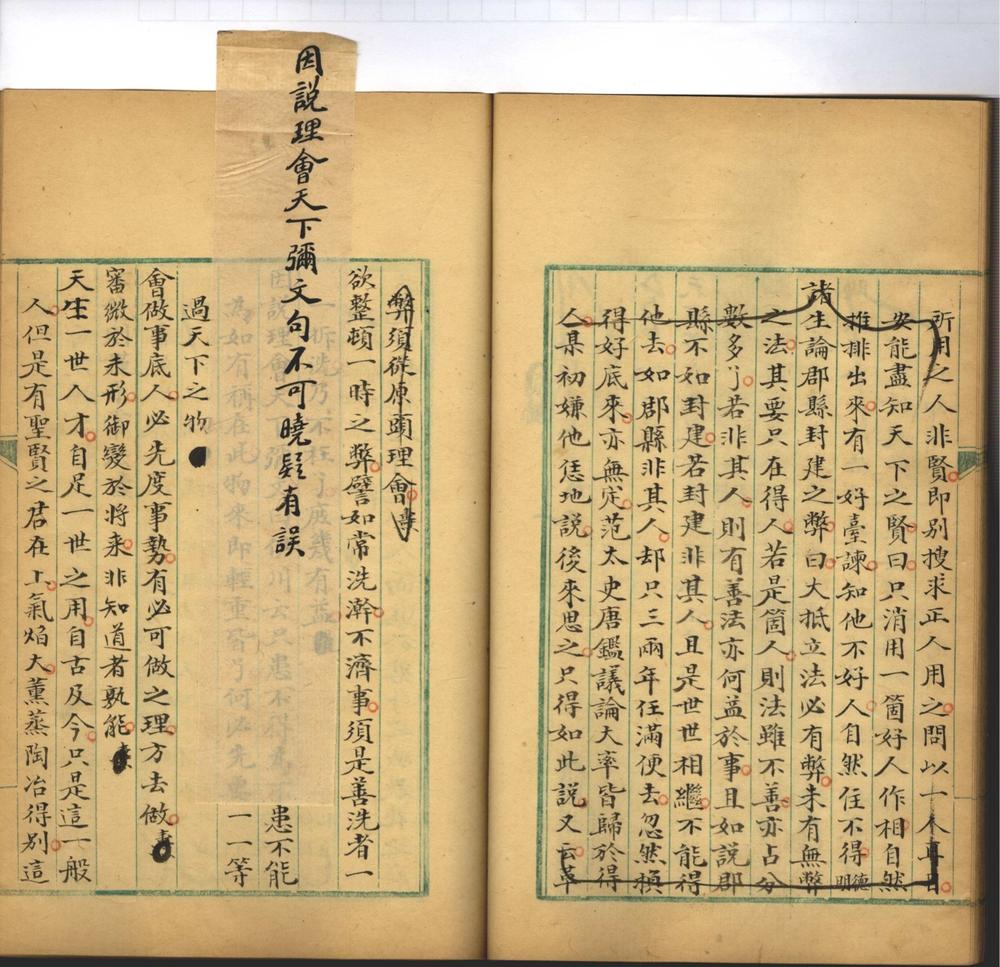 所用之人非賢即別搜求正人用之問以一人耳目
安能盡知天下之賢曰只消用一箇好人作相自然
推排出來有一好臺諫知他不好人自然住不得明德
諸生論郡縣封建之弊曰大抵立法必有弊未有無弊
之法其要只在得人若是箇人則法雖不善亦占分
數多了若非其人則有善法亦何益於事且如說郡
縣不如封建若封建非其人且是世世相繼不能得
他去如郡縣非其人却只三兩年任滿便去忽然換
得好底來亦無定范太史唐鑑議論大率皆歸於得
人某初嫌他恁地說後來思之只得如此說又云革
弊須從原頭理會
欲整頓一時之弊譬如常洗澣不濟事須是善洗者一
因說理會天下彌文句不可曉疑有誤
一拆洗乃不枉了庶幾有益
患不能
一一等
過天下之物
會做事底人必先度事勢有必可做之理方去做
審微於未形御變於將来非知道者孰能
天生一世人才自足一世之用自古及今只是這一般
人但是有聖賢之君在上氣焰大薰蒸陶冶得別這